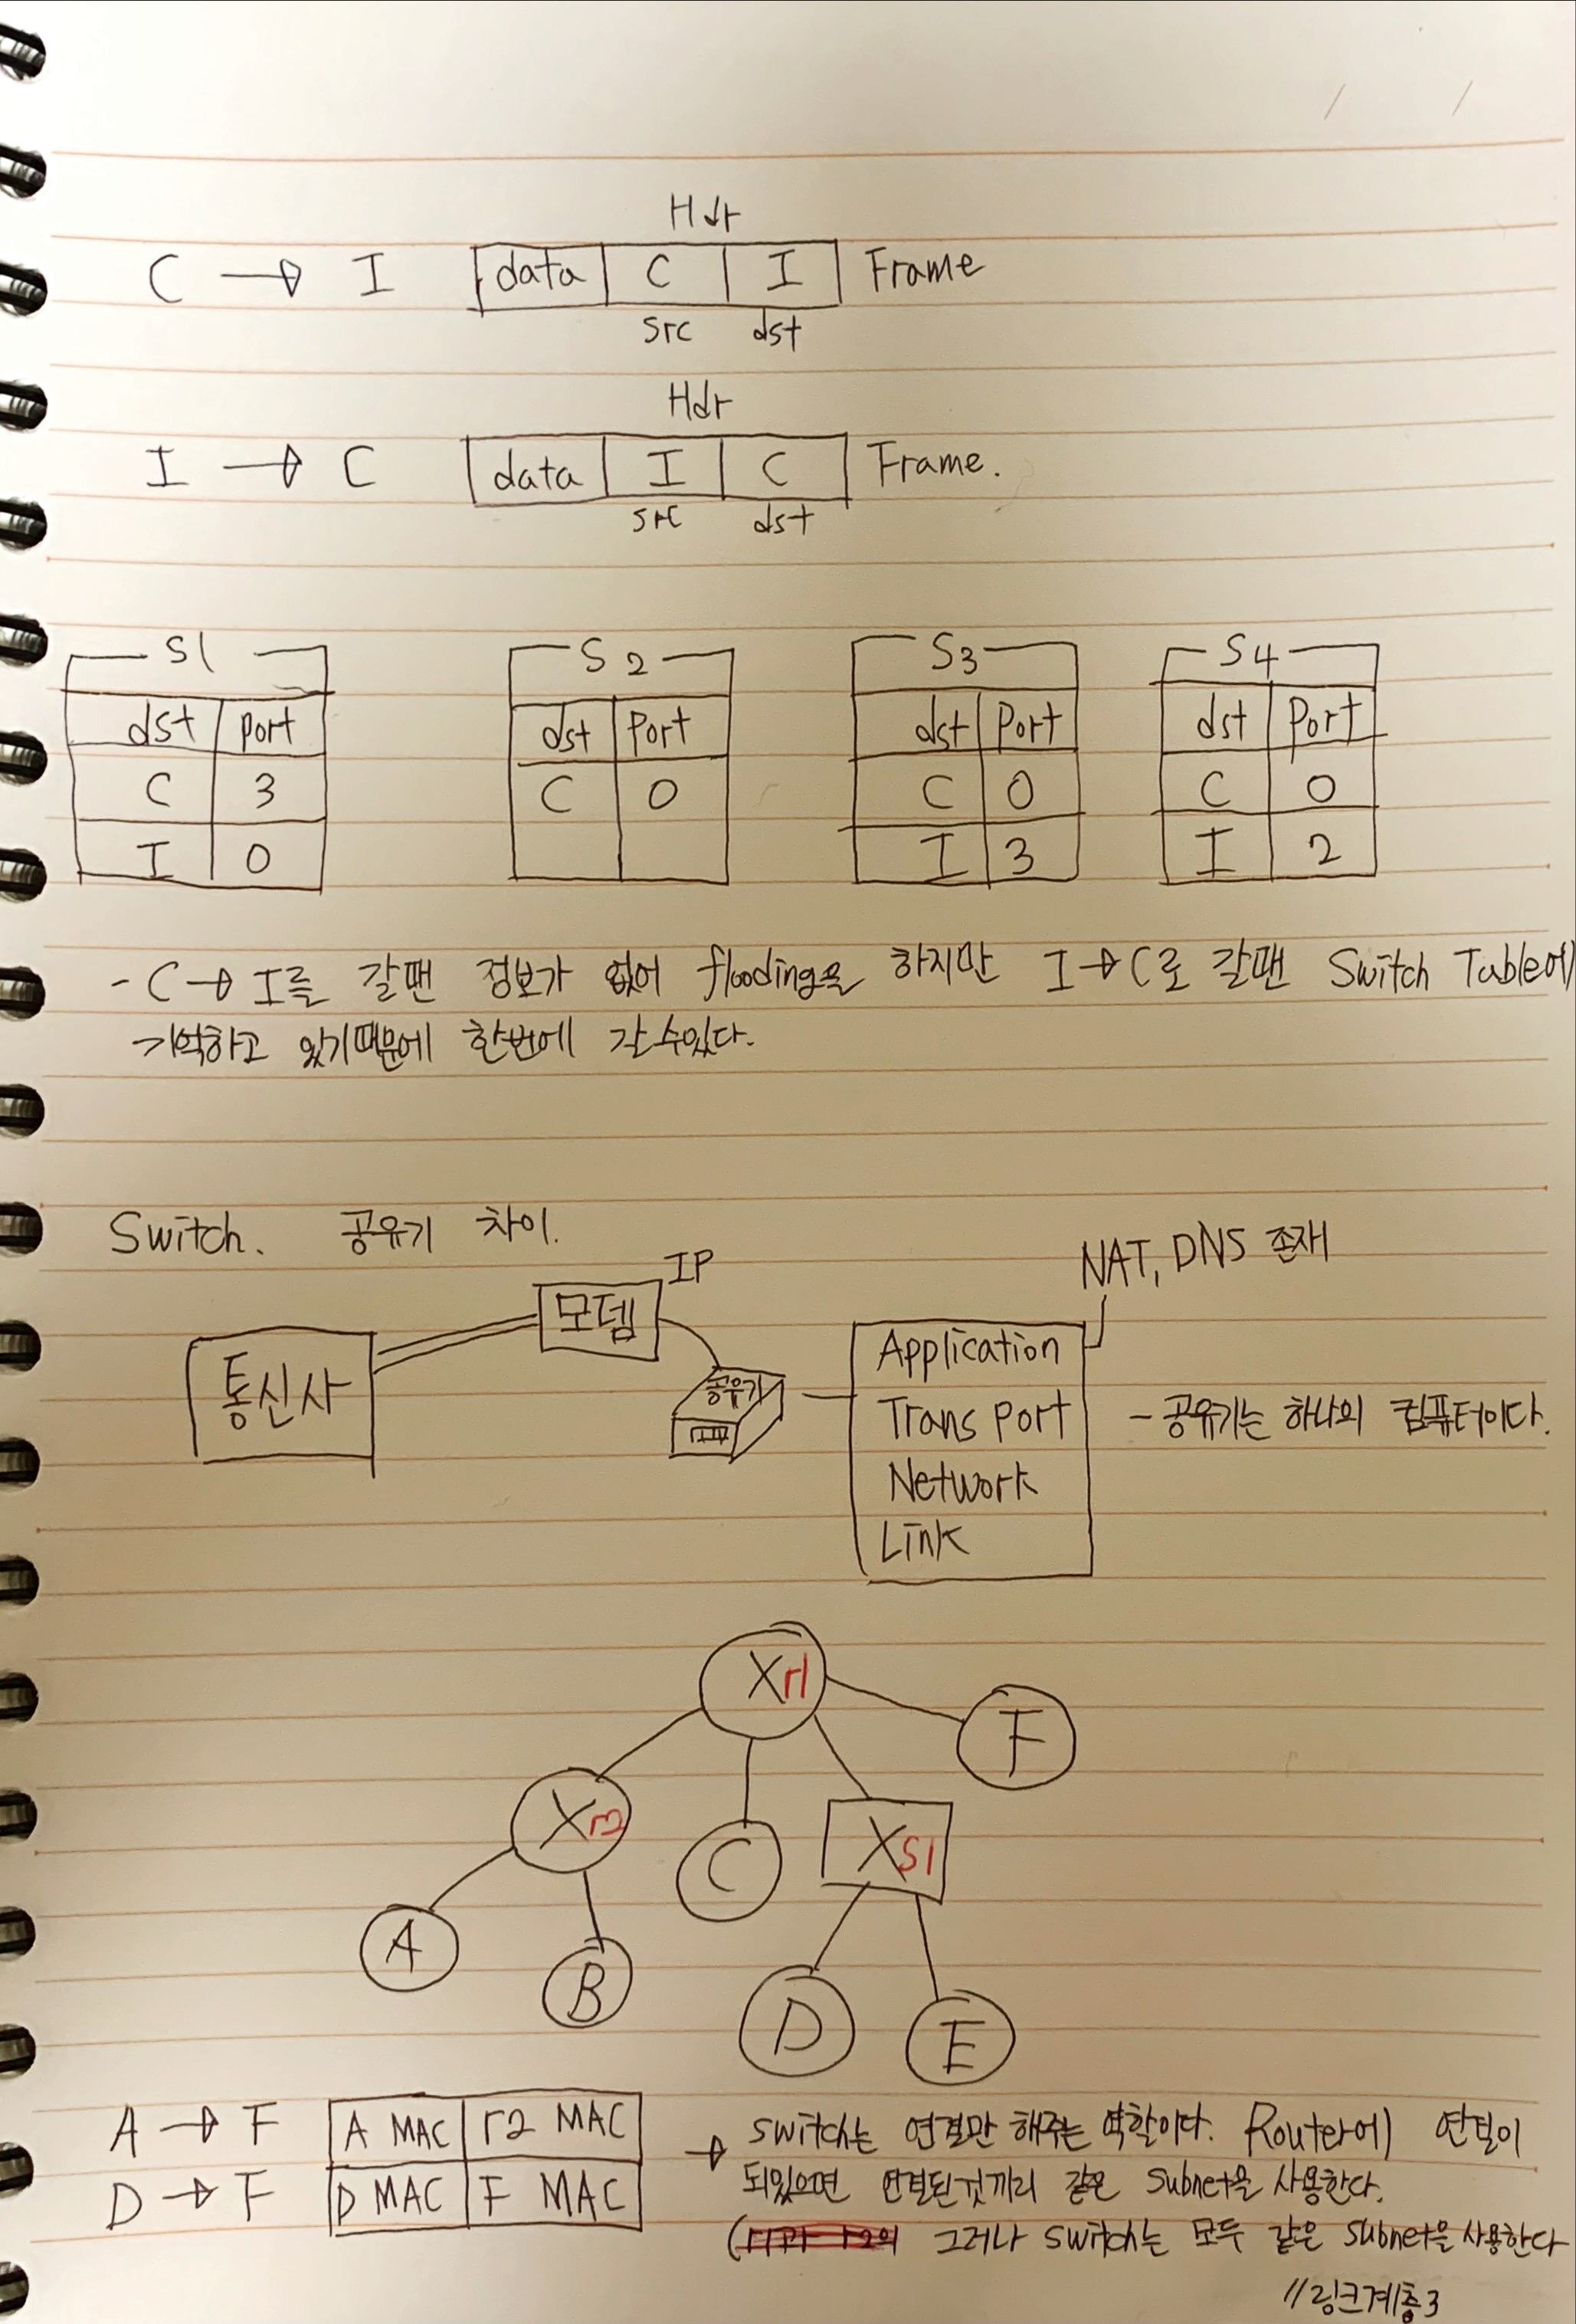 Hdr
C → I data C I Frame
src dst
Hdr
I → C data I C Frame.
src dst
S1 S2 S3 S4
dst Port dst Port dst Port dst Port
C 3 C 0 C 0 C 0
I 0 I 3 I 2
- C → I를 갈땐 정보가 없어 flooding을 하지만 I → C로 갈땐 Switch Table에
기억하고 있기때문에 한번에 갈수있다.
Switch. 공유기 차이.
NAT, DNS 존재
IP
모뎀
통신사
공유기
Application
Transport
Network
Link
- 공유기는 하나의 컴퓨터이다.
Xr1
F
Xr2
C
XS1
A
B
D
E
A → F A MAC r2 MAC
D → F D MAC F MAC
→ switch는 연결만 해주는 역할이다. Router에 연결이
되있으면 연결된것끼리 같은 subnet을 사용한다.
(r1과 r2의 그러나 switch는 모두 같은 subnet을 사용한다
//링크계층3